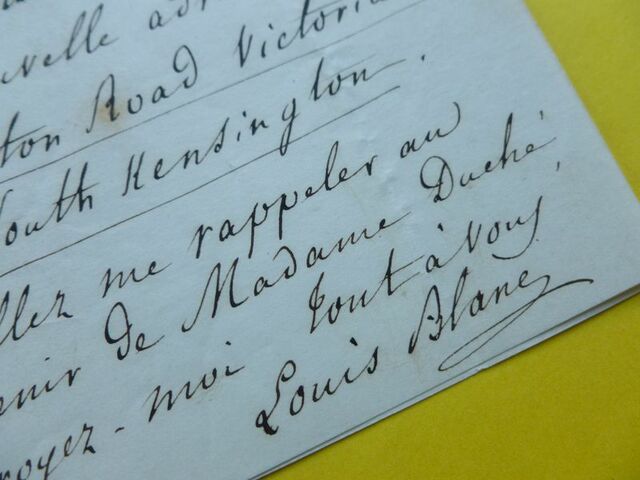 uvelle adr
ton Road Victoria
South Kensington.
llez me rappeler au
enir de Madame Duché,
royez-moi tout à vous
Louis Blanc